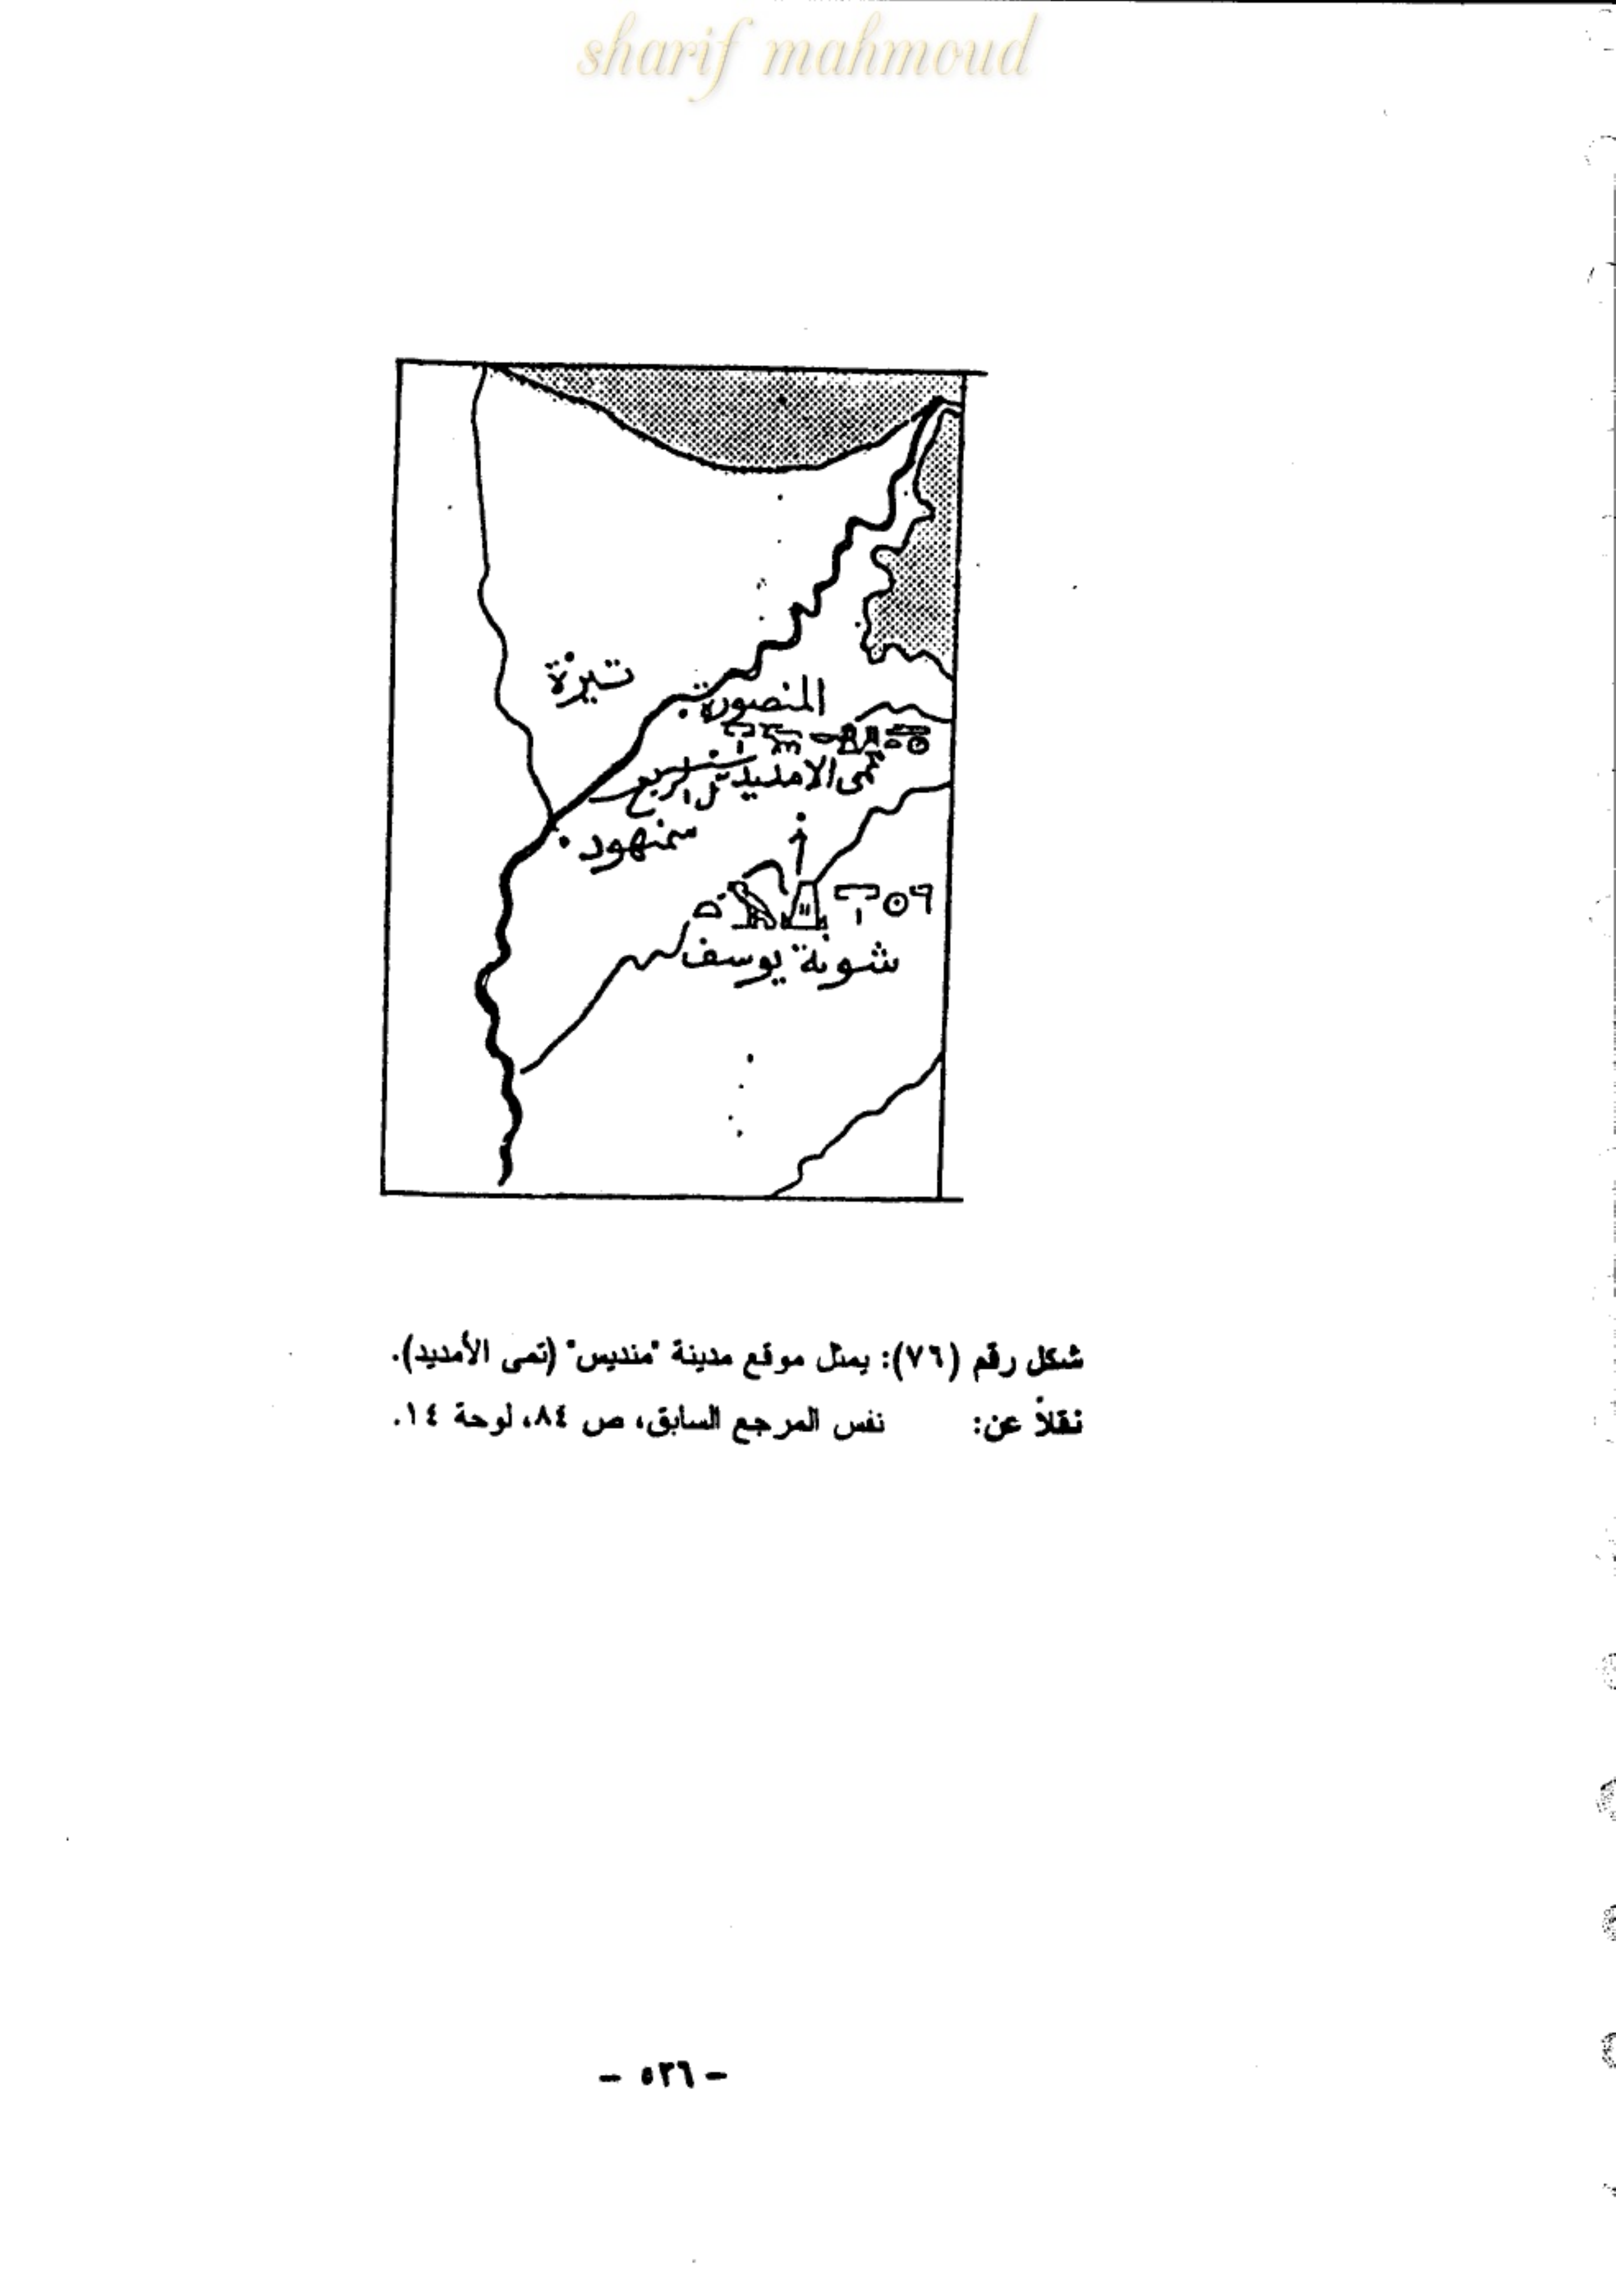 sharif mahmoud
تيزة
المنصورة
تمى الامديد تل الربع
سمنهود
شونة يوسف
شكل رقم (٧٦): يمثل موقع مدينة "منديس" (تمى الأمديد).
نقلاً عن: نفس المرجع السابق، ص ٨٤، لوحة ١٤.
- ٥٣٦ -